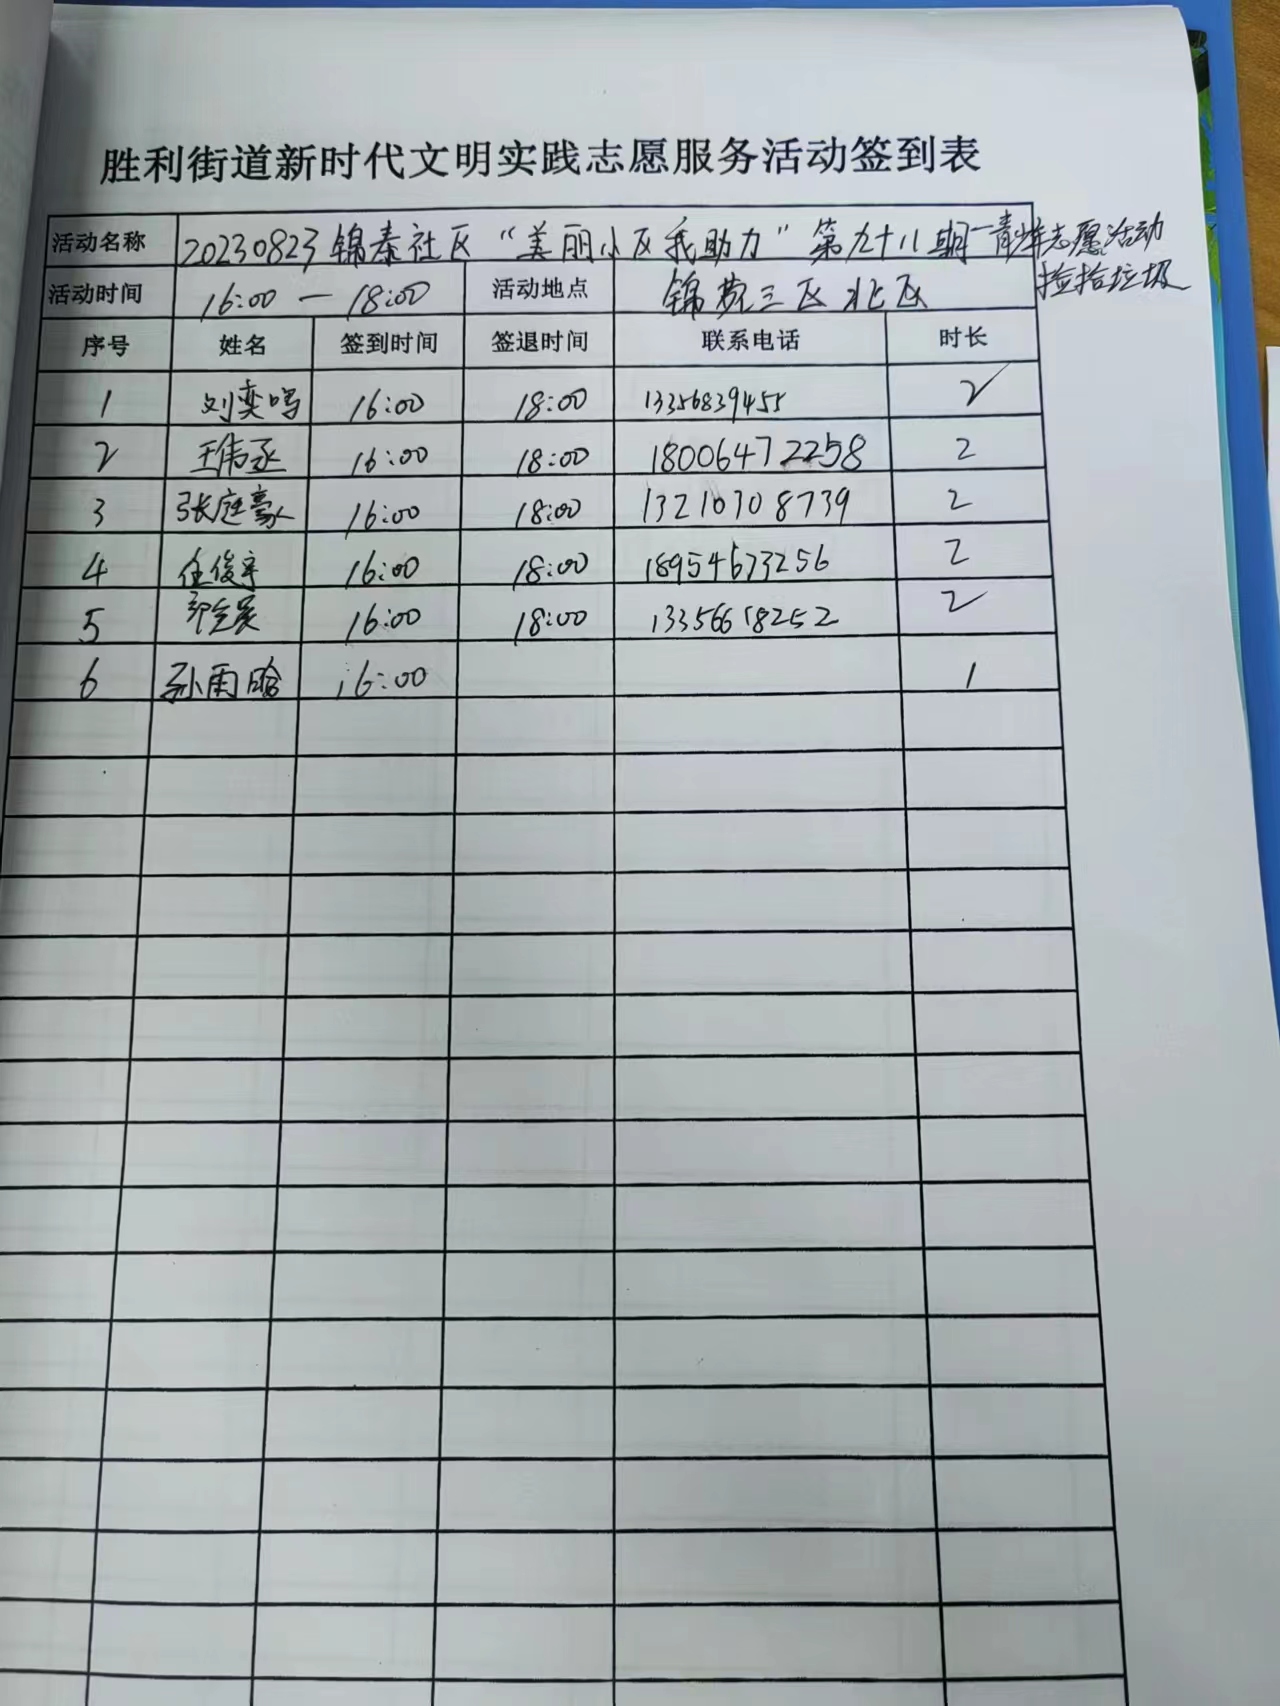 胜利街道新时代文明实践志愿服务活动签到表
活动名称 20230823锦泰社区“美丽小区我助力”第九十八期—青少年志愿活动
捡拾垃圾
活动时间 16:00 — 18:00 活动地点 锦苑三区北区
序号 姓名 签到时间 签退时间 联系电话 时长
1 刘奕鸣 16:00 18:00 13356839455 2
2 王伟丞 16:00 18:00 18006472258 2
3 张庭豪 16:00 18:00 13210308739 2
4 任俊宇 16:00 18:00 18954673256 2
5 16:00 18:00 13356618252 2
6 孙雨晗 16:00 1